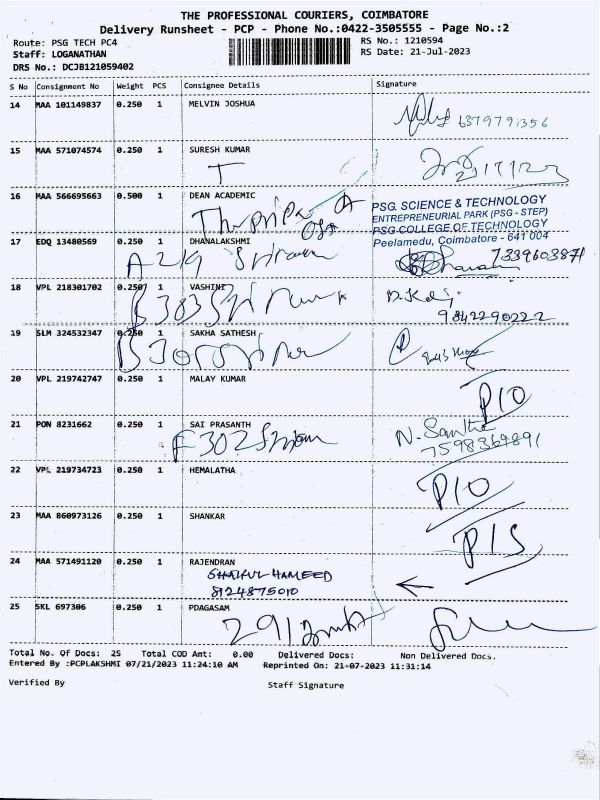 THE PROFESSIONAL COURIERS, COIMBATORE
Delivery Runsheet - PCP - Phone No.:0422-3505555 - Page No.:2
Route: PSG TECH PC4
RS No.: 1210594
Staff: LOGANATHAN
RS Date: 21-Jul-2023
DRS No.: DCJB121059402
S No Consignment No Weight PCS Consignee Details Signature
14 MAA 101149837 0.250 1 MELVIN JOSHUA
6379791356
15 MAA 571074574 0.250 1 SURESH KUMAR
16 MAA 566695663 0.500 1 DEAN ACADEMIC
PSG. SCIENCE & TECHNOLOGY
ENTREPRENEURIAL PARK (PSG - STEP)
PSG COLLEGE OF TECHNOLOGY
Peelamedu, Coimbatore - 641 004
17 EDQ 13480569 0.250 1 DHANALAKSHMI
7339603871
18 VPL 218301702 0.250 1 VASHINI
9842290222
19 SLM 324532347 0.250 1 SAKHA SATHESH
20 VPL 219742747 0.250 1 MALAY KUMAR
P/O
21 PON 8231662 0.250 1 SAI PRASANTH
F302
7598369891
22 VPL 219734723 0.250 1 HEMALATHA
P/O
23 MAA 860973126 0.250 1 SHANKAR
P/S
24 MAA 571491120 0.250 1 RAJENDRAN
SHAIFUL HAMEED
8124875010
25 SKL 697306 0.250 1 PDAGASAM
291
Total No. Of Docs: 25 Total COD Amt: 0.00 Delivered Docs: Non Delivered Docs.
Entered By :PCPLAKSHMI 07/21/2023 11:24:10 AM Reprinted On: 21-07-2023 11:31:14
Verified By Staff Signature